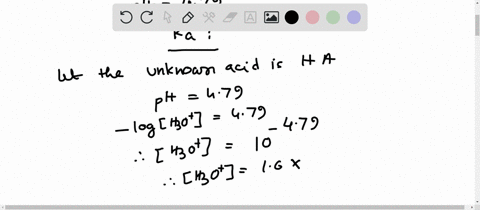 Ka :
let the unknown acid is HA
pH = 4.79
-log[H3O+] = 4.79
∴ [H3O+] = 10^-4.79
∴ [H3O+] = 1.6 x